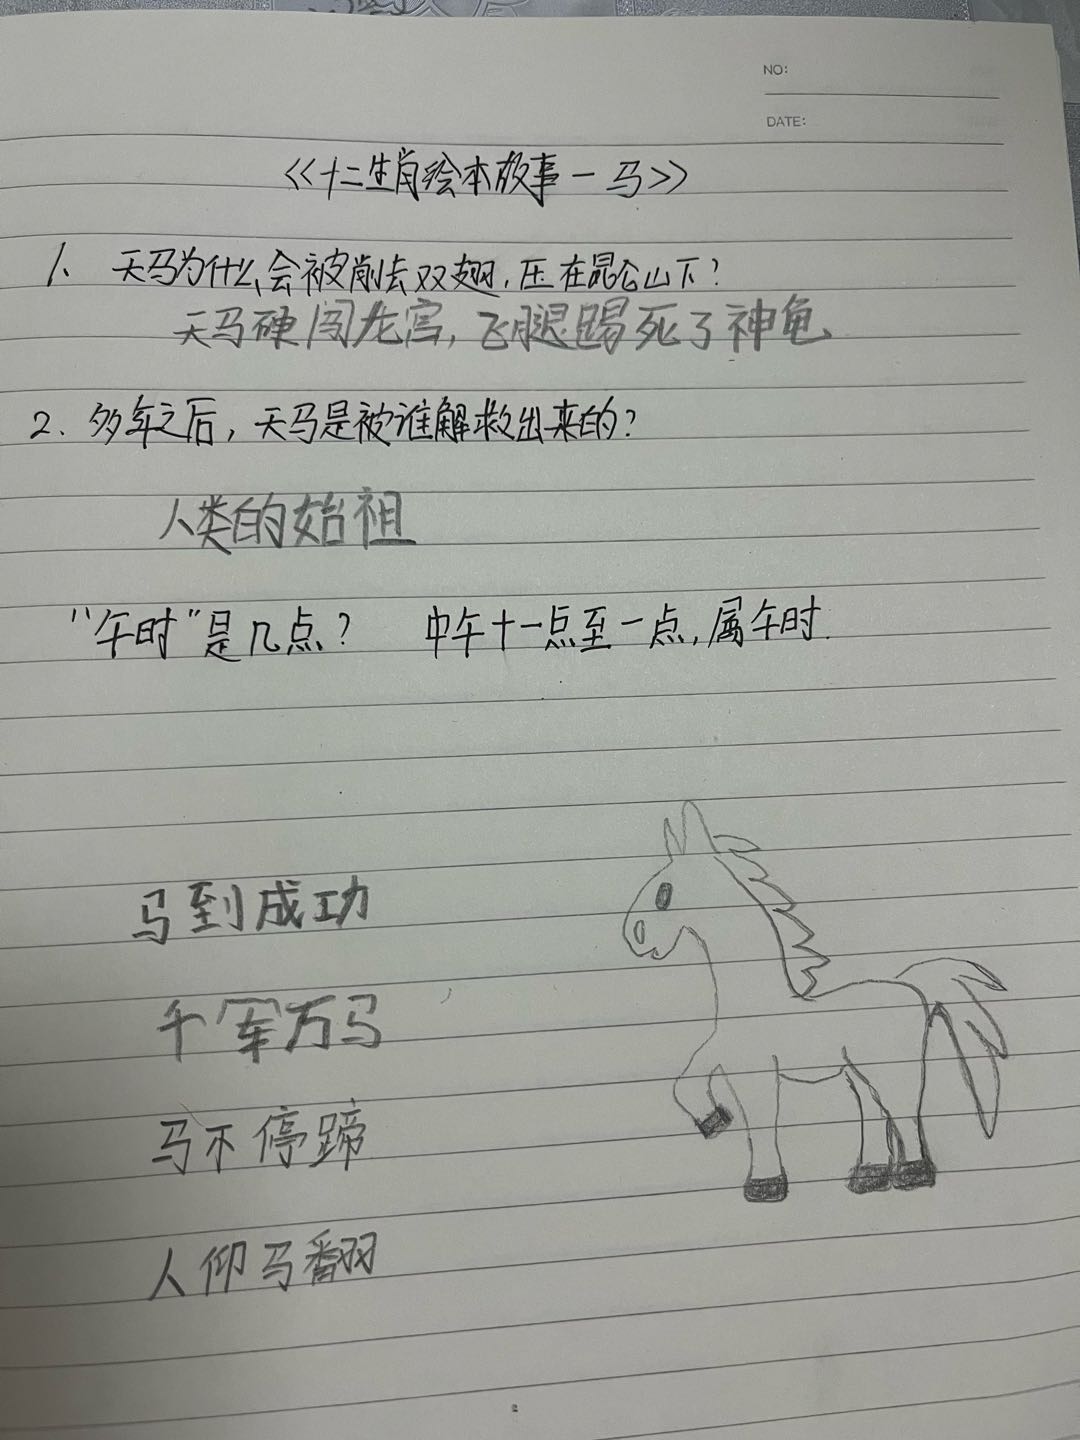 NO:
DATE:
《十二生肖绘本故事－马》
1、天马为什么会被削去双翅，压在昆仑山下？
天马硬闯龙宫，飞腿踢死了神龟
2．多年之后，天马是被谁解救出来的？
人类的始祖
“午时”是几点？ 中午十一点至一点，属午时．
马到成功
千军万马
马不停蹄
人仰马翻